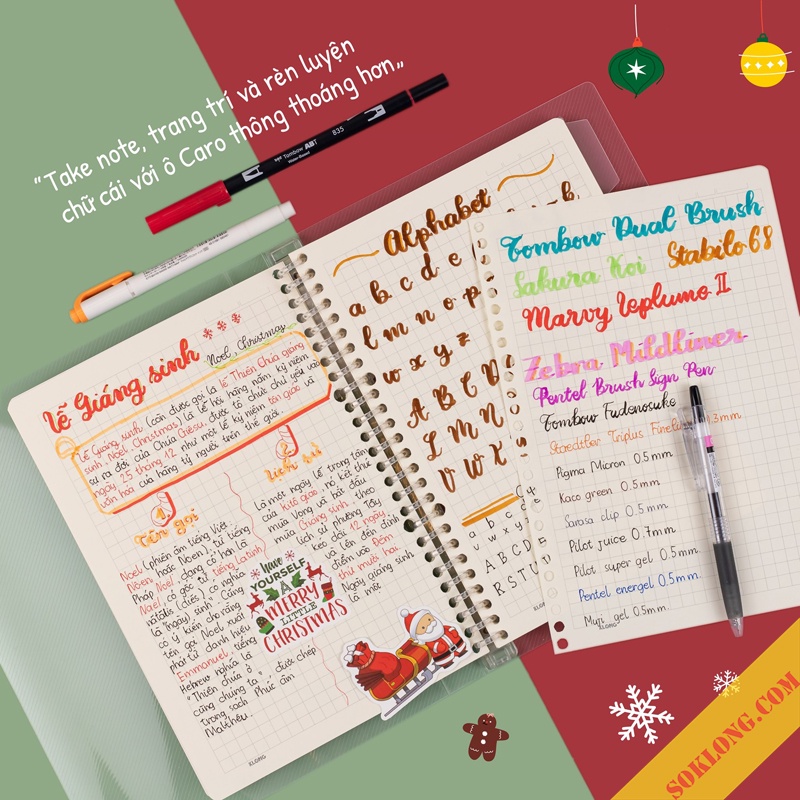 “Take note, trang trí và rèn luyện
chữ cái với ô Caro thông thoáng hơn„
Tombow ABT
835
Lễ Giáng sinh
Noel, Christmas
Lễ Giáng sinh (còn được gọi là lễ Thiên Chúa giáng
sinh, Noel, Christmas) là lễ hội hàng năm kỷ niệm
sự ra đời của Chúa Giêsu, được tổ chức chủ yếu vào
ngày 25 tháng 12 như một lễ kỷ niệm tôn giáo và
văn hóa của hàng tỷ người trên thế giới.
1
Tên gọi
Noel (phiên âm tiếng Việt
Nôen, hoặc Nôen), từ tiếng
Pháp Noel, dạng cổ hơn là
Nael, có gốc từ tiếng Latinh
nātālis (diēs) có nghĩa
là "ngày sinh". Cũng
có ý kiến cho rằng
tên gọi Noel xuất
phát từ danh hiệu
Emmanuel, tiếng
Hebrew nghĩa là
"Thiên chúa ở
cùng chúng ta" được chép
trong sách Phúc âm
Matthêu.
Lịch sử
Là một ngày lễ trọng tâm
của Kitô giáo, nó kết thúc
mùa Vọng và bắt đầu
mùa Giáng sinh, theo
lịch sử phương Tây
kéo dài 12 ngày
và lên đến đỉnh
điểm vào Đêm
thứ mười hai.
Ngày giáng sinh
là một
HAVE
YOURSELF
A
MERRY
LITTLE
CHRISTMAS
KLONG
Alphabet
a b c d e
l m n o p
w x y z
A B C D
L M N
V W X
a b c
w x y z
A B C D E
R S T U
KLONG
Tombow Dual Brush
Sakura Koi Stabilo 68
Marvy Leplume II
Zebra Mildliner
Pentel Brush Sign Pen
Tombow Fudenosuke
Staedtler Triplus Fineliner 0.3mm.
Pigma Micron 0.5mm.
Kaco green 0.5mm.
Sarasa clip 0.5mm.
Pilot juice 0.7mm.
Pilot super gel 0.5mm.
Pentel energel 0.5mm.
Muji gel 0.5mm.
KLONG
SOKLONG.COM